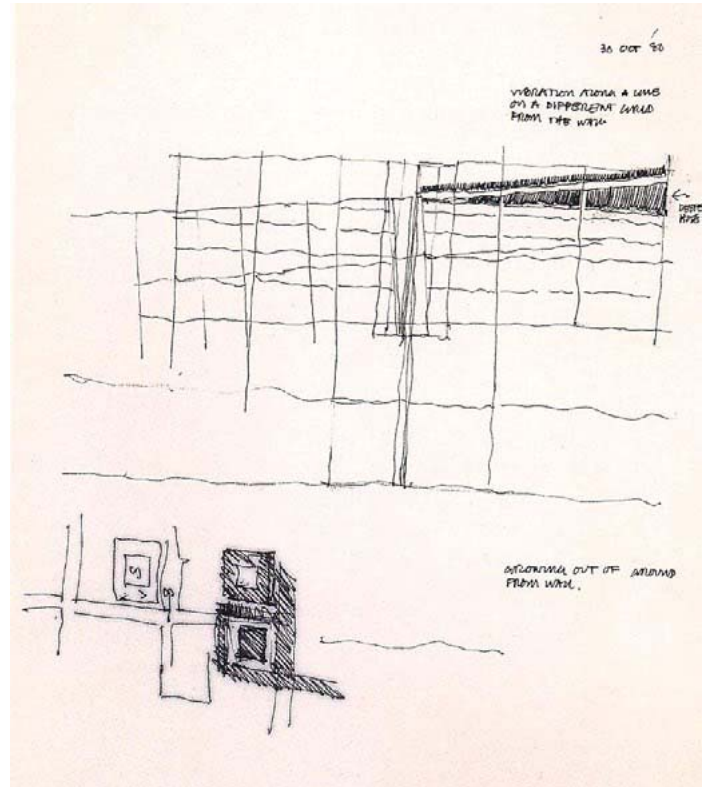 30 OCT '80
VIBRATION ALONG A LINE
ON A DIFFERENT
FROM THE WALL
GROWING OUT OF GROUND
FROM WALL.